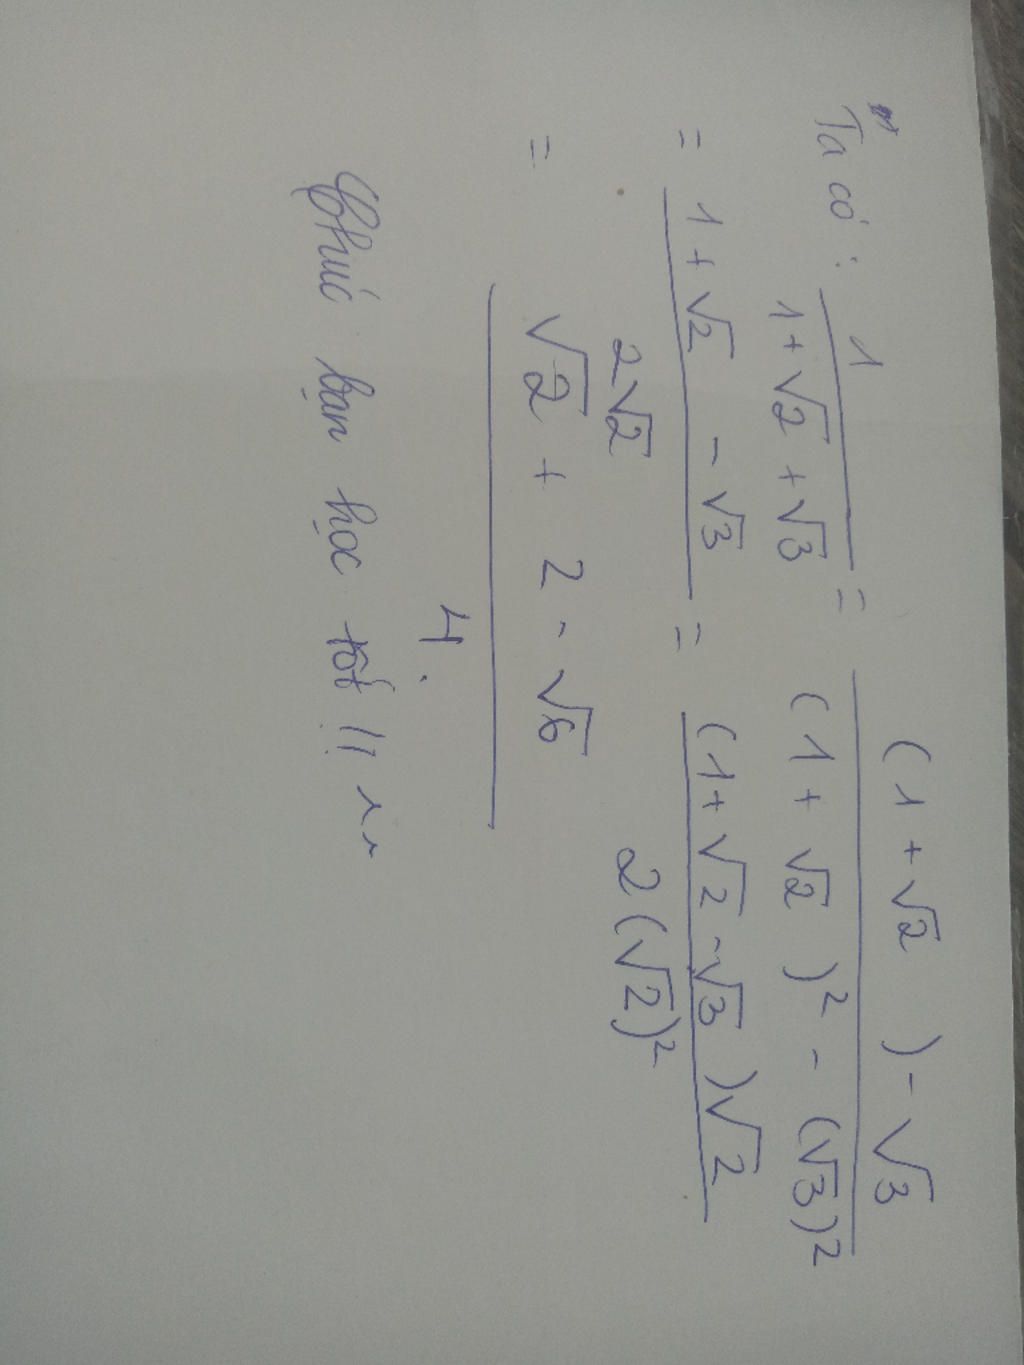 Ta có : 1/(1+√2+√3) = ((1+√2)-√3)/((1+√2)²-(√3)²)
= (1+√2-√3)/(2√2) = ((1+√2-√3)√2)/(2(√2)²)
= (√2+2-√6)/4.
Chúc bạn học tốt !!